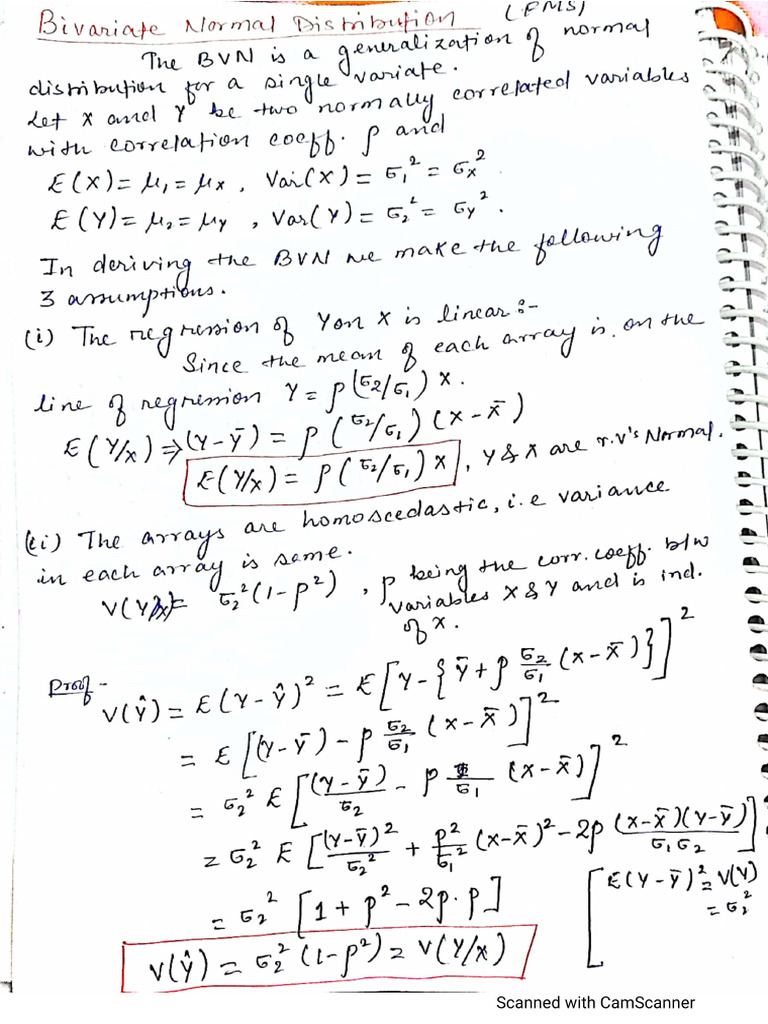 Bivariate Normal Distribution (PMS)
The BVN is a generalization of normal
distribution for a single variate.
Let X and Y be two normally correlated variables
with correlation coeff. ρ and
E(X) = μ₁ = μx , Var(X) = σ₁² = σx²
E(Y) = μ₂ = μy , Var(Y) = σ₂² = σy².
In deriving the BVN we make the following
3 assumptions.
(i) The regression of Y on X is linear:-
Since the mean of each array is on the
line of regression Y = ρ(σ₂/σ₁) X.
E(Y/x) ⇒ (Y-ȳ) = ρ(σ₂/σ₁)(x-x̄)
E(Y/x) = ρ(σ₂/σ₁) X , Y & X are r.v's Normal.
(ii) The arrays are homoscedastic, i.e variance
in each array is same.
V(Y/x) = σ₂²(1-ρ²) , ρ being the corr. coeff. b/w
variables X & Y and is ind.
of x.
Proof-
V(Ŷ) = E(Y-Ŷ)² = E[Y-{Ȳ+ρ σ₂/σ₁ (x-x̄)}]²
= E[(Y-Ȳ) - ρ σ₂/σ₁ (x-x̄)]²
= σ₂² E[(Y-Ȳ)/σ₂ - ρ 1/σ₁ (x-x̄)]²
= σ₂² E[(Y-Ȳ)²/σ₂² + ρ²/σ₁² (x-x̄)² - 2ρ (x-x̄)(Y-Ȳ)/σ₁σ₂]
= σ₂² [1 + ρ² - 2ρ.ρ]
[E(Y-Ȳ)² = V(Y)
= σ₂²
V(Ŷ) = σ₂² (1-ρ²) = V(Y/x)
Scanned with CamScanner